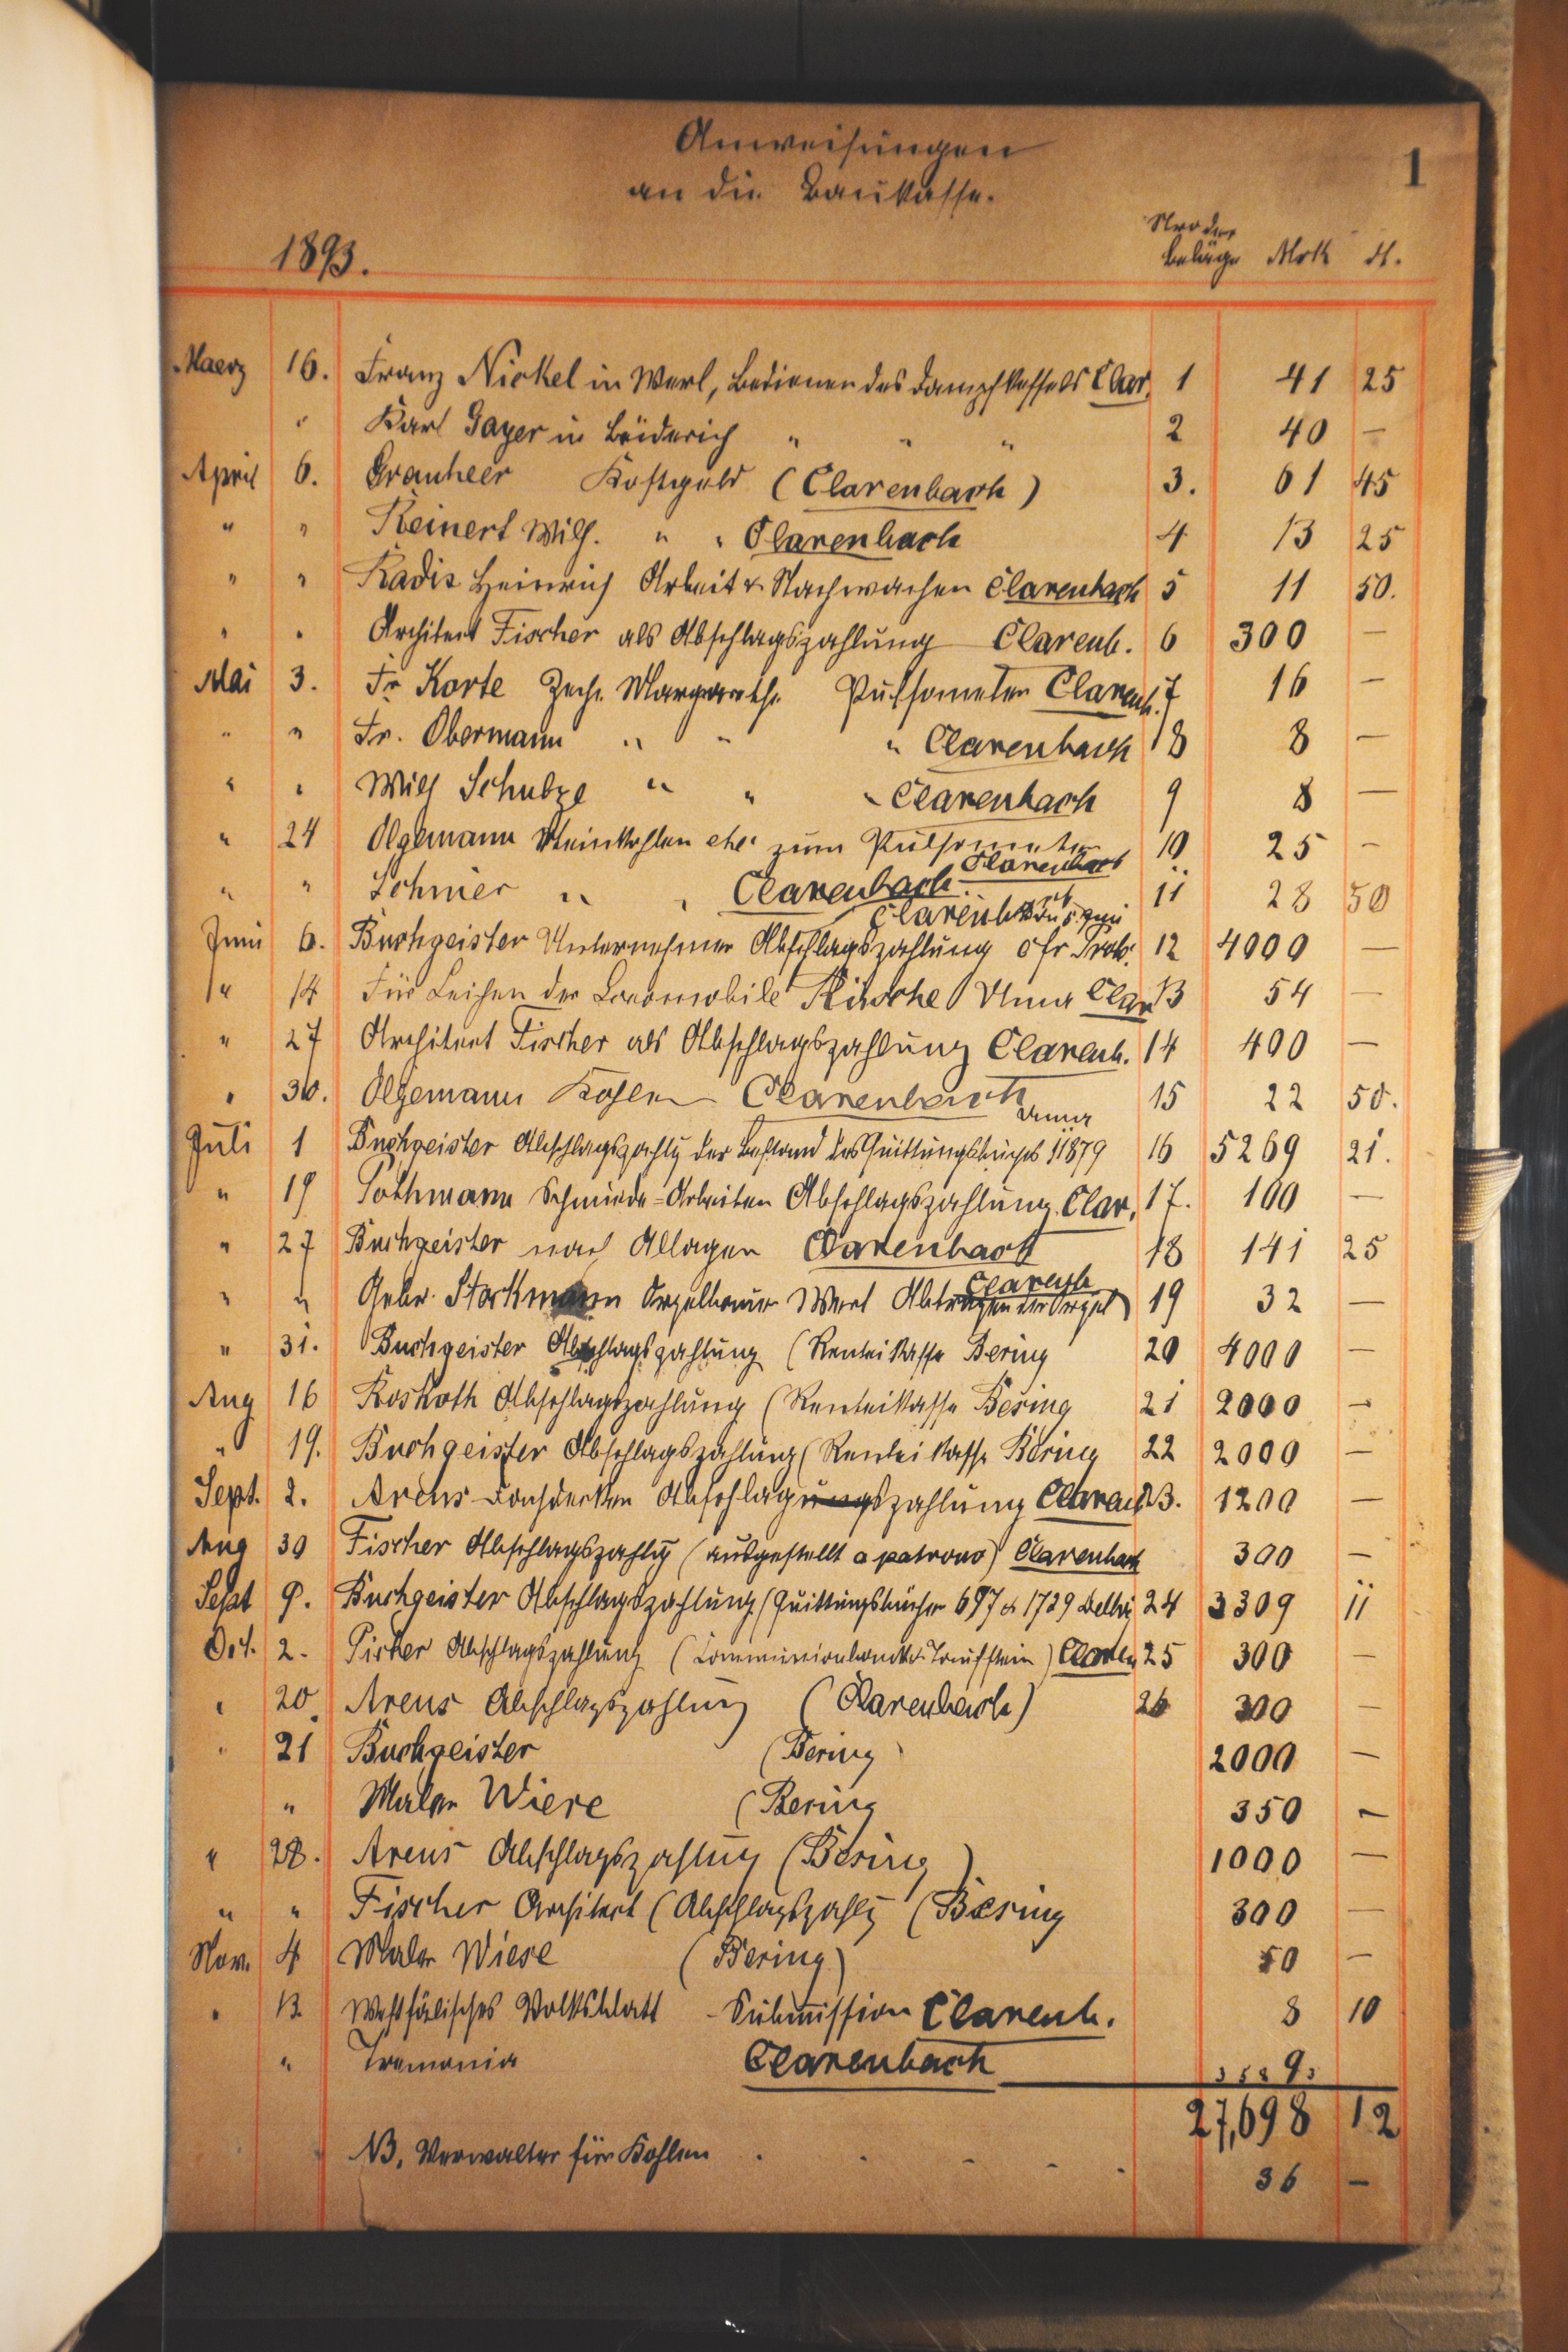 Anweisungen
an die Baukasse.
1
1893.
Nro der
Beläge Mrk d.
Maerz 16. Franz Nickel in Werl, Bedienen des Dampfkessels Clar. 1 41 25
" Karl Gayer in Büderich " " " 2 40 —
April 6. Granheer Kostgeld (Clarenbach) 3. 61 45
" " Reinert Wilh. " " Clarenbach 4 13 25
" " Radis Heinrich Arbeit u. Nachwachen Clarenbach 5 11 50.
" " Architect Fischer als Abschlagszahlung Clarenb. 6 300 —
Mai 3. Fr. Korte Zeche Margarethe Pulsometer Clarenb. 7 16 —
" " Fr. Obermann " " " Clarenbach 8 8 —
" " Wilh Schulze " " " Clarenbach 9 8 —
" 24 Olgemann Steinkohlen etc. zum Pulsometer Clarenbach 10 25 —
" " Schnier " " Clarenbach 11 28 50
Clarenb
Juni 6. Buchgeister Unternehmer Abschlagszahlung 12 4000 —
" 14 Für Leihen der Locomobile Unna Clar 13 54 —
" 27 Architect Fischer als Abschlagszahlung Clarenb. 14 400 —
" 30. Olgemann Kohlen Clarenbach 15 22 50.
Unna
Juli 1 Buchgeister Abschlagszahlg der Bestand des Quittungsbuches 11879 16 5269 21.
" 19 Pothmann Schmiede-Arbeiten Abschlagszahlung Clar. 17. 100 —
" 27 Buchgeister nach Allagen Clarenbach 18 141 25
Clarenb
" " Gebr. Stockmann Orgelbauer Werl Abtragen der Orgel 19 32 —
" 31. Buchgeister Abschlagszahlung (Renteikasse Bering 20 4000 —
Aug 16 Roskoth Abschlagszahlung (Renteikasse Bering 21 2000 —
" 19. Buchgeister Abschlagszahlung (Renteikasse Bering 22 2000 —
Sept. 2. Arens Abschlagungszahlung Clarenb 23. 1200 —
Aug 30 Fischer Abschlagszahlg (ausgestellt a patrono) Clarenbach 300 —
Sept 9. Buchgeister Abschlagszahlung (Quittungsbücher 697 & 1729 24 3309 11
Oct. 2. Abschlagszahlung (Communionbank & Taufstein) Claren 25 300 —
" 20. Arens Abschlagszahlung (Clarenbach) 26 300 —
" 21 Buchgeister (Bering 2000 —
" Maler Wiere (Bering 350 —
" 28. Arens Abschlagszahlung (Bering) 1000 —
" " Fischer Architect (Abschlagszahlg (Bering 300 —
Nov. 4 Maler Wiese (Bering) 50 —
" 13. Westfälisches Volksblatt - Submission Clarenb. 8 10
" Tremonia Clarenbach
27,698 12
NB. Verwalter für Kohlen . . . . . 36 —